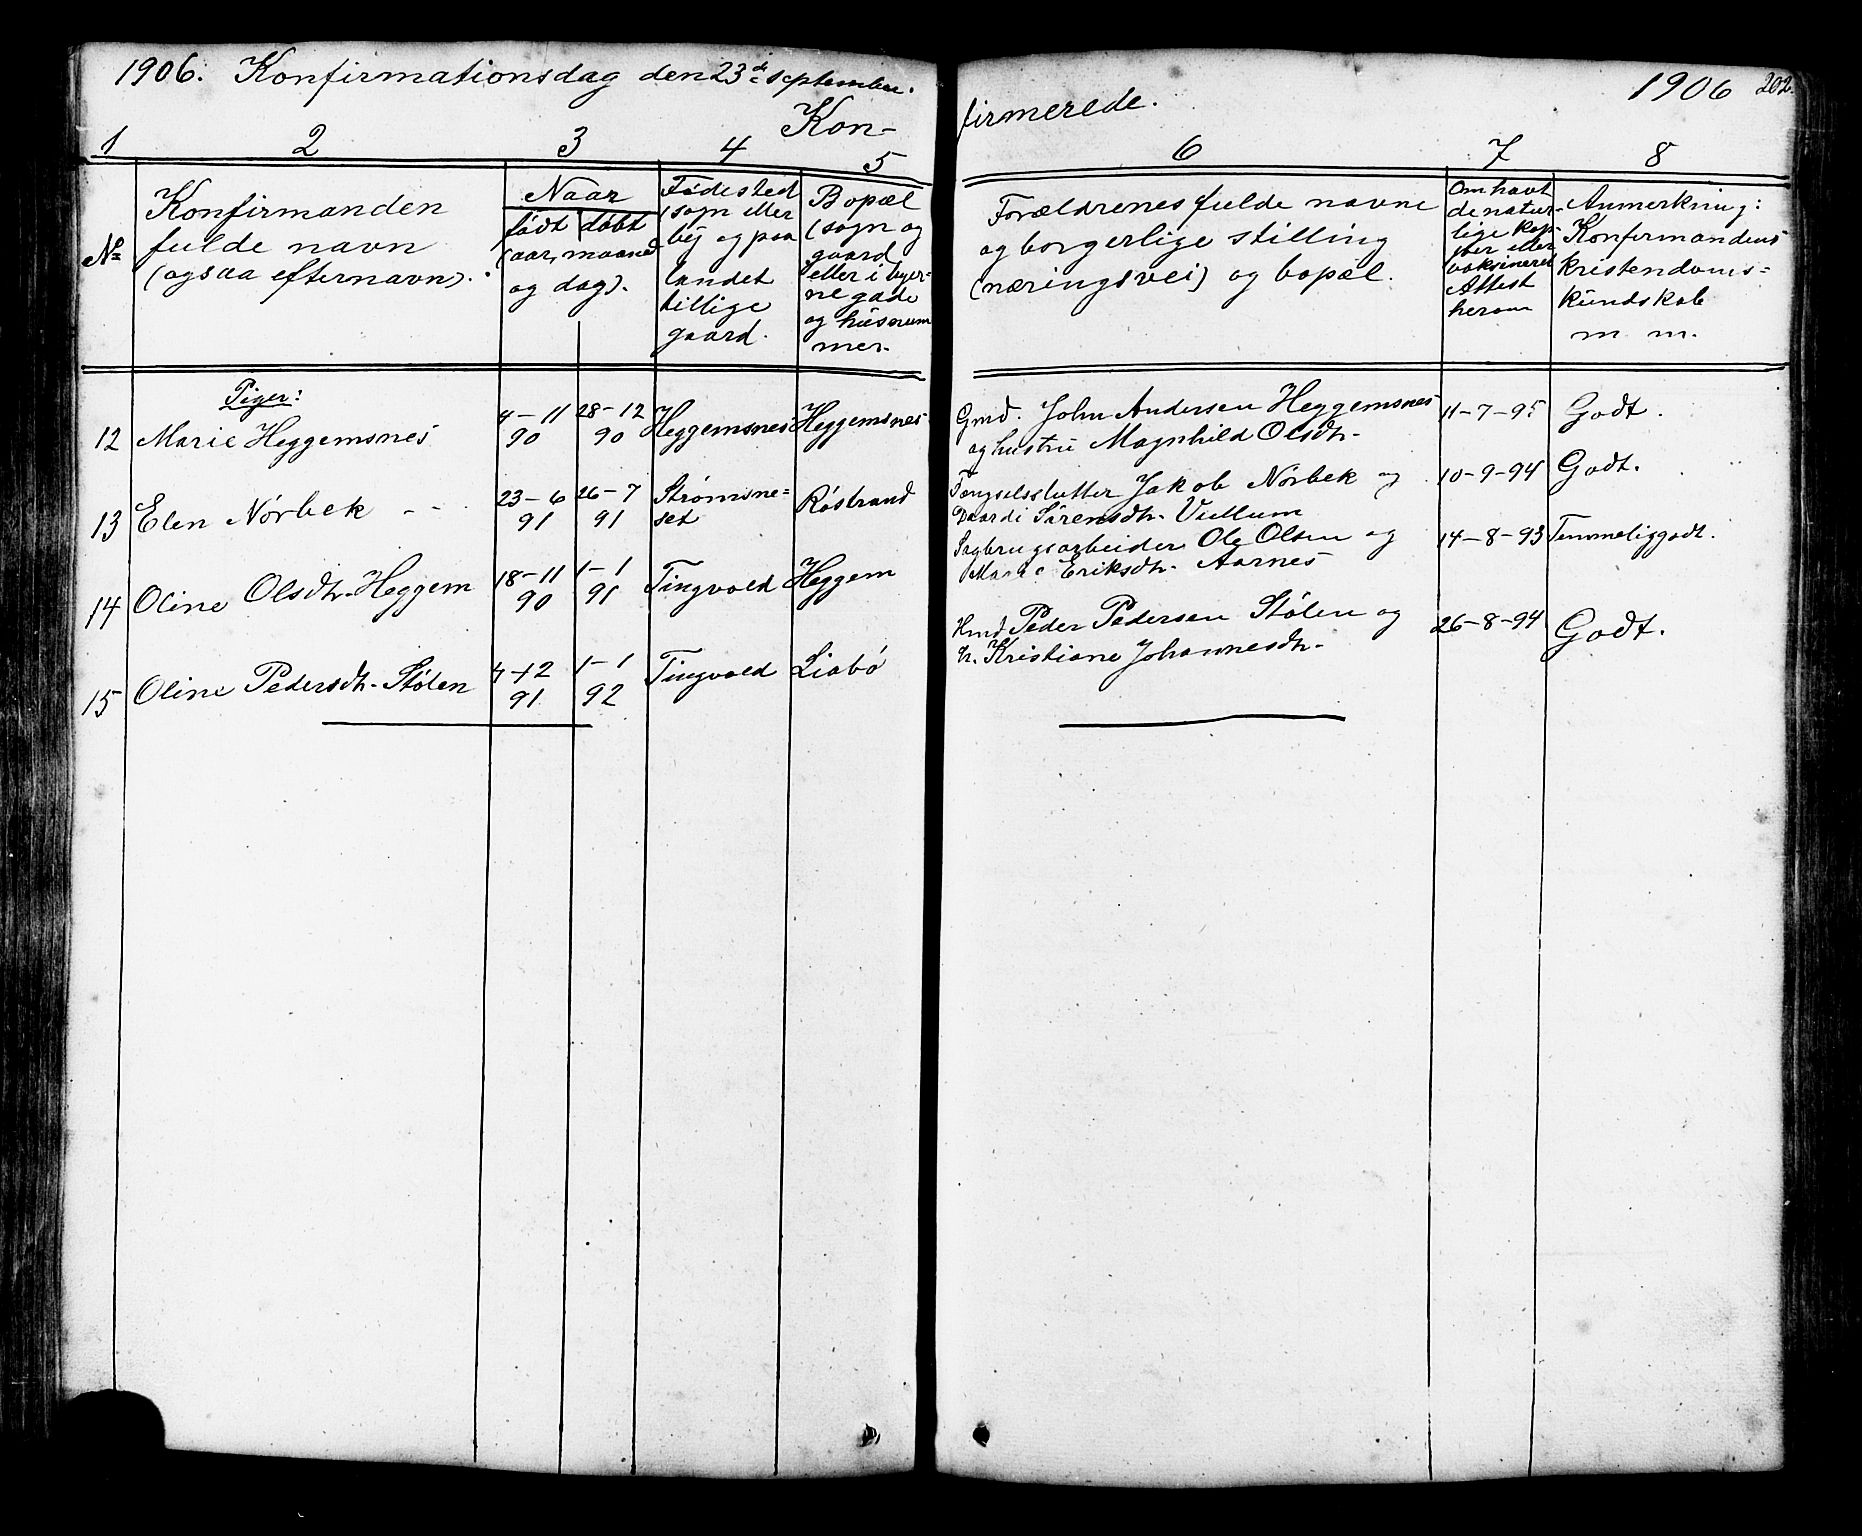 1906. Konfirmationsdag den 23de september.
Kon-
1 2 3 4 5
No
Konfirmanden
fulde navn
(ogsaa efternavn).
Naar
født døbt
(aar, maaned
og dag).
Fødested
(sogn eller
by og paa
landet
tillige
gaard.
Bopæl
(sogn og
gaard
eller i byer-
ne gade
og husnum
mer.
Piger:
12 Marie Heggemsnes 4-11 90 28-12 90 Heggemsnes Heggemsnes
13 Elen Nørbek - - 23-6 91 26-7 91 Strømsne=
set Røstrand
14 Oline Olsdtr. Heggem 18-11 90 1-1 91 Tingvold Heggem
15 Oline Pedersdtr. Stølen 4-12 91 1-1 92 Tingvold Liabø
firmerede.
1906 202.
6 7 8
Forældrenes fulde navne
og borgerlige stilling
(næringsvei) og bopæl.
Om havt
de natur-
lige kop-
per eller
vaksineret
Attest
herom
Anmerkning:
Konfirmandens
kristendoms=
kundskab
m. m.
Gmd. John Andersen Heggemsnes 11-7-95 Godt.
og hustru Magnhild Olsdtr.
Jakob Nørbek og 10-9-94 Godt.
Sørensdtr. Vullum
Sagbrugsarbeider Ole Olsen og 14-8-93 Temmelig godt.
Marie Eriksdtr. Aarnes
Hmd Peder Pedersen Stølen og 26-8-94 Godt.
h. Kristiane Johannesdtr.